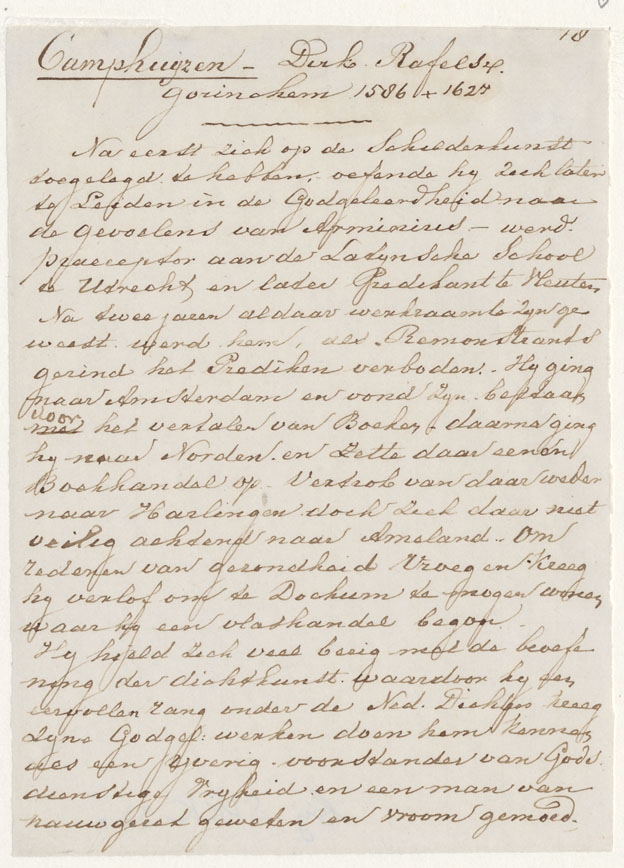 18
Camphuyzen - Dirk Rafelsz.
Gorinchem 1586 + 1627
Na eerst zich op de Schilderkunst
toegelegd te hebben, oefende hy zich later
te Leiden in de Godgeleerdheid naar
de gevoelens van Arminius - werd
Praeceptor aan de Latynsche School
te Utrecht, en later Predikant te Vleuten
Na twee jaren aldaar werkzaam te zyn ge
weest werd hem, als Remonstrants
gezind het Prediken verboden. - Hy ging
naar Amsterdam en vond zyn bestaan
door
met het vertalen van Boeken, daarna ging
hy naar Norden en zette daar eenen
Boekhandel op. Vertrok van daar weder
naar Harlingen doch zich daar niet
veilig achtend naar Ameland. Om
redenen van gezondheid vroeg en kreeg
hy verlof om te Dockum te mogen wonen
waar hy een vlashandel begon.
Hy hield zich veel bezig met de beoefe
ning der dichtkunst waardoor hy een
eervollen rang onder de Ned. Dichters kreeg
Zyne Godgel: werken doen hem kennen
als een yverig voorstander van Gods
dienstige Vryheid en een man van
nauwgezet geweten en vroom gemoed.